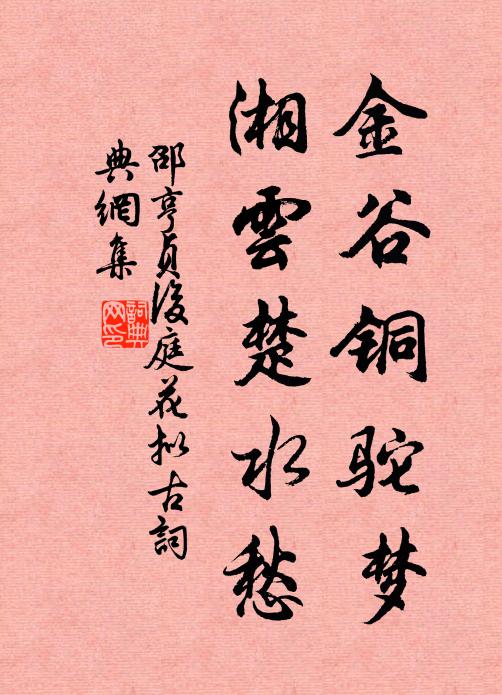 金谷铜驼梦
湘雲楚水愁
邵亨貞後庭花拟古詞
典網集
詞典
网印